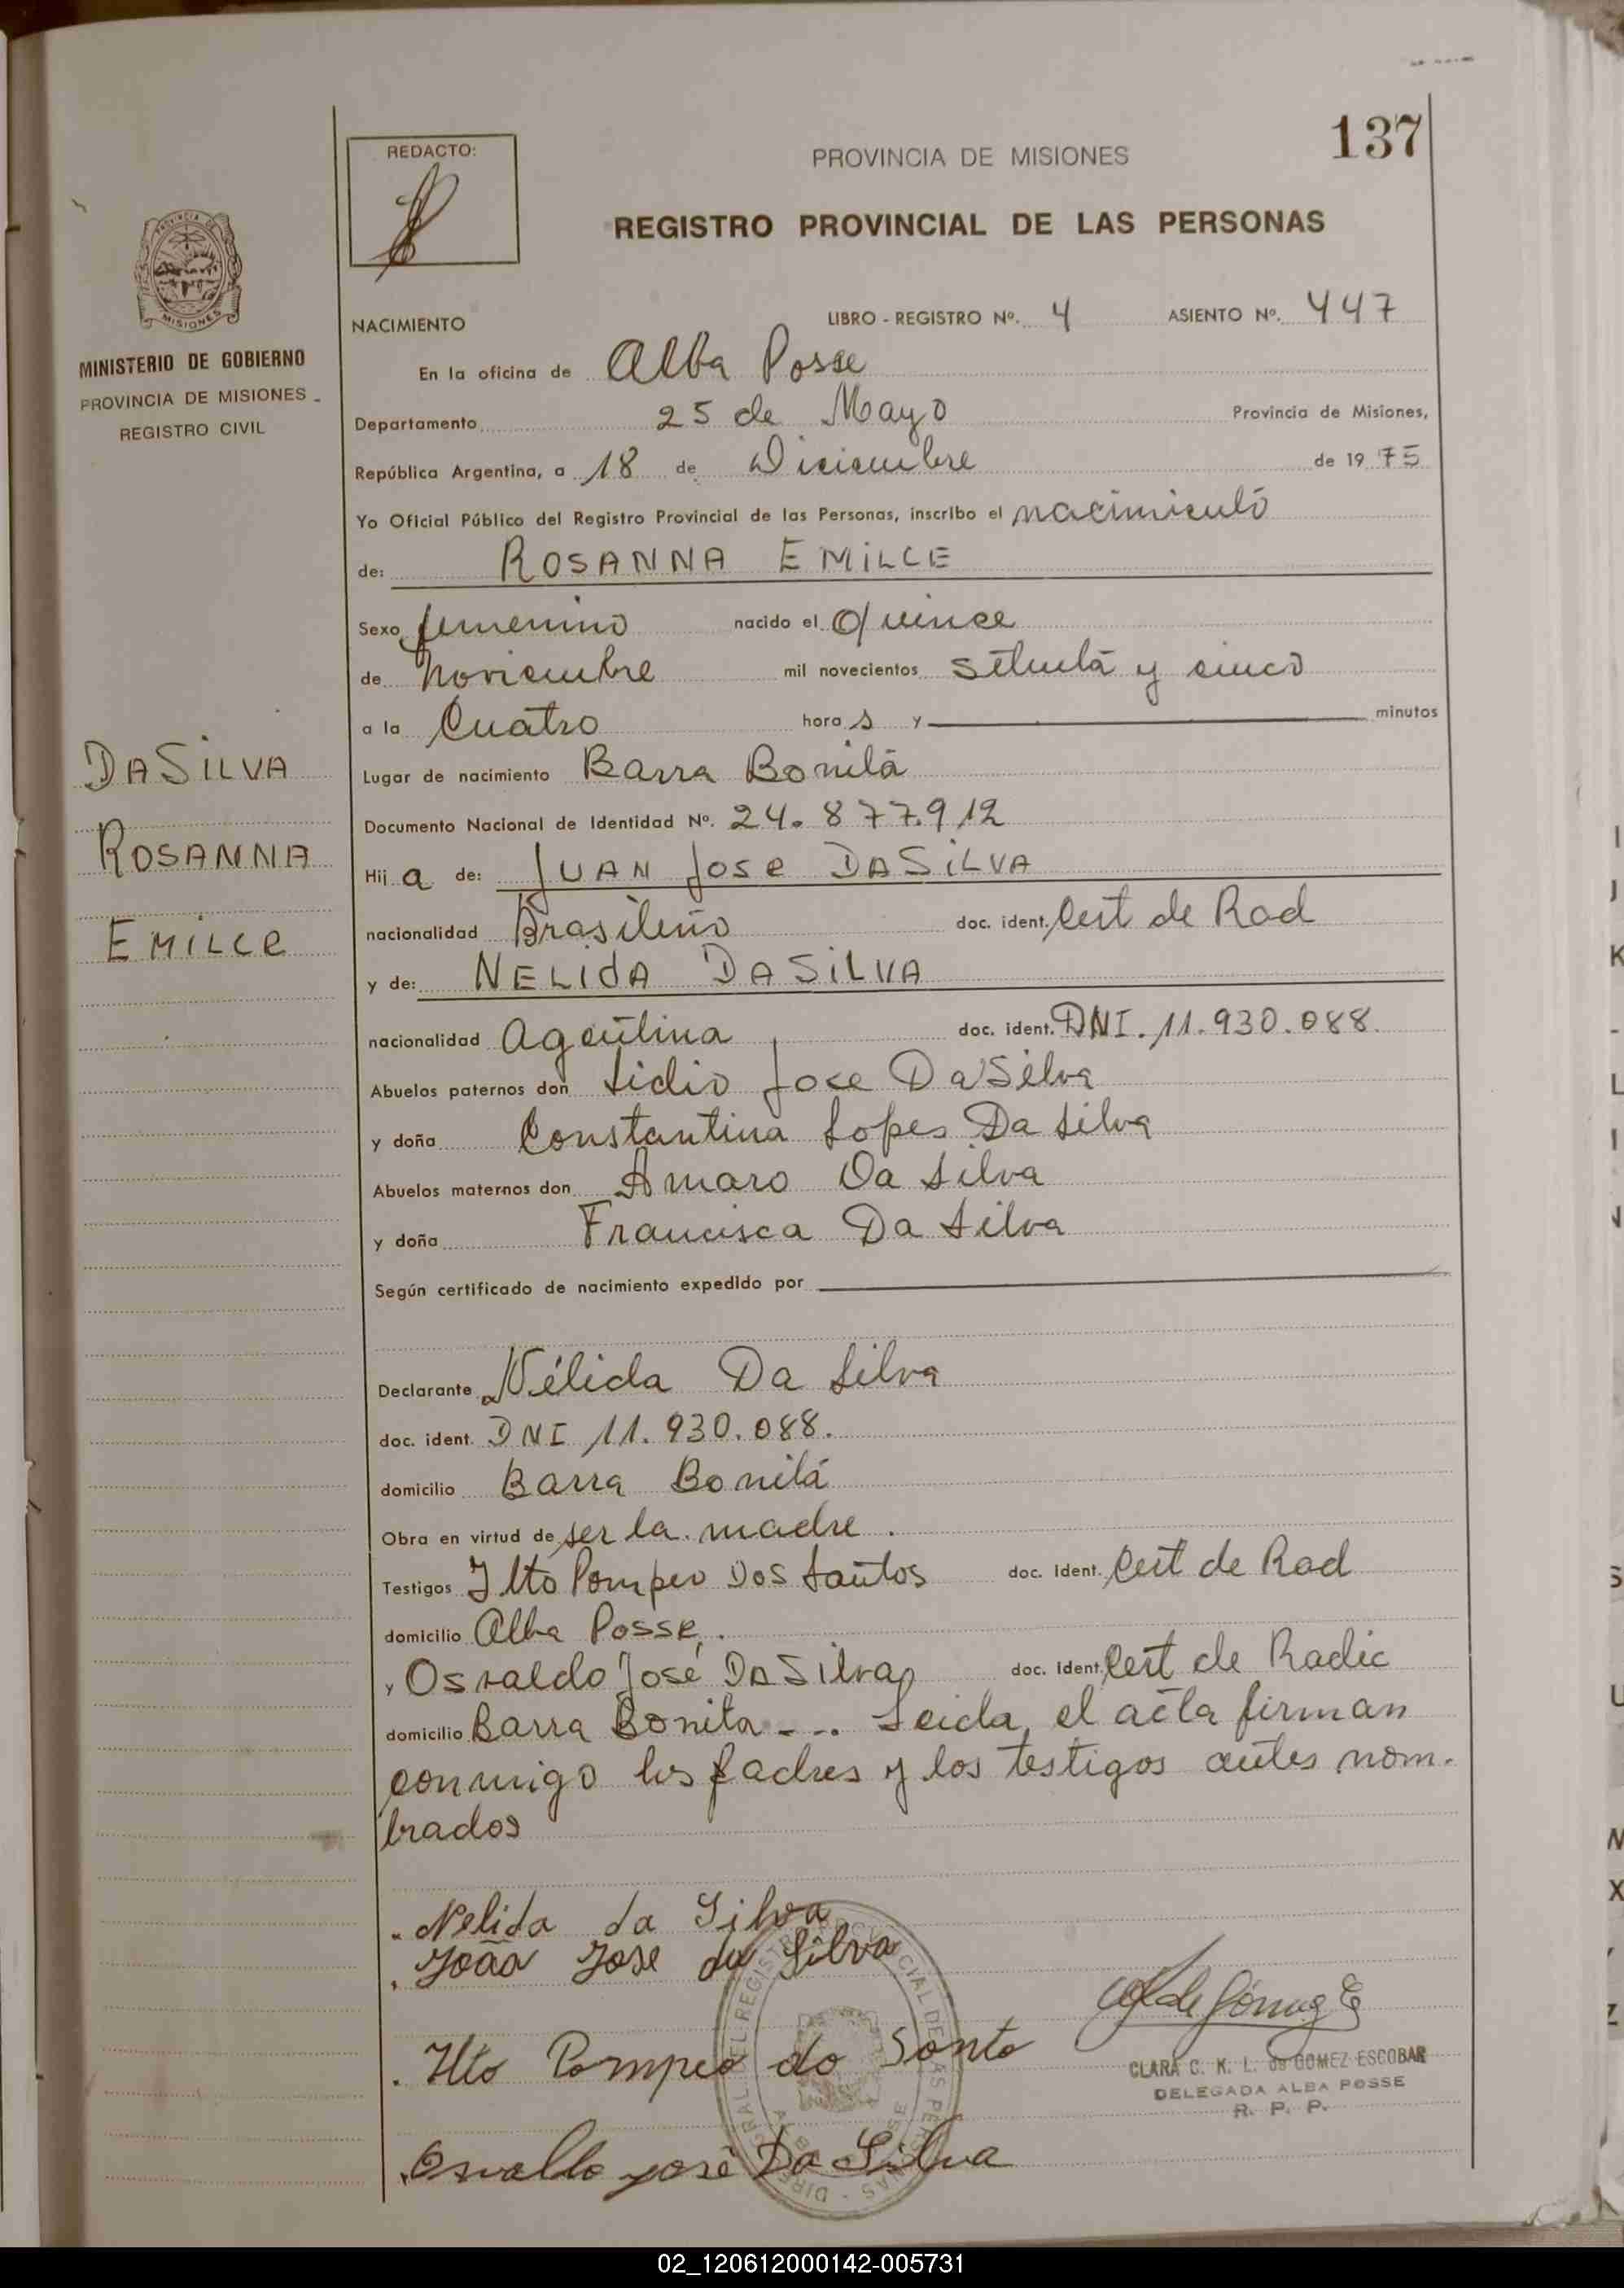 137
REDACTO:
PROVINCIA DE MISIONES
REGISTRO PROVINCIAL DE LAS PERSONAS
PROVINCIA DE
MISIONES
MINISTERIO DE GOBIERNO
PROVINCIA DE MISIONES
REGISTRO CIVIL
NACIMIENTO LIBRO - REGISTRO Nº. 4 ASIENTO Nº. 447
En la oficina de Alba Posse
Departamento 25 de Mayo Provincia de Misiones,
República Argentina, a 18 de Diciembre de 19 75
Yo Oficial Público del Registro Provincial de las Personas, inscribo el nacimiento
de: ROSANNA EMILCE
Sexo femenino nacido el Quince
de Noviembre mil novecientos setenta y cinco
a la Cuatro hora s y minutos
DASILVA
ROSANNA
EMILCE
Lugar de nacimiento Barra Bonita
Documento Nacional de Identidad Nº. 24.877.912
Hij a de: JUAN Jose DASILVA
nacionalidad Brasileño doc. ident. Cert de Rad
y de: NELIDA DASILVA
nacionalidad Agentina doc. ident. DNI. 11.930.088.
Abuelos paternos don Lidio Jose DaSilva
y doña Constantina Lopes Da Silva
Abuelos maternos don Amaro Da Silva
y doña Francisca Da Silva
Según certificado de nacimiento expedido por
Declarante Nélida Da Silva
doc. ident. DNI 11.930.088.
domicilio Barra Bonita
Obra en virtud de ser la madre.
Testigos Ilto Pompeo Dos Santos doc. Ident. Cert de Rad
domicilio Alba Posse.
y Osvaldo José DaSilva doc. Ident. Cert de Radic
domicilio Barra Bonita - - . Leida, el acta firman
conmigo los padres y los testigos antes nom-
brados
Nelida da Silva
João Jose da Silva
Ilto Pompeo do Santo
CLARA C. K. L. de GOMEZ ESCOBAR
DELEGADA ALBA POSSE
R. P. P.
Osvallo José Da Silva
02_120612000142-005731